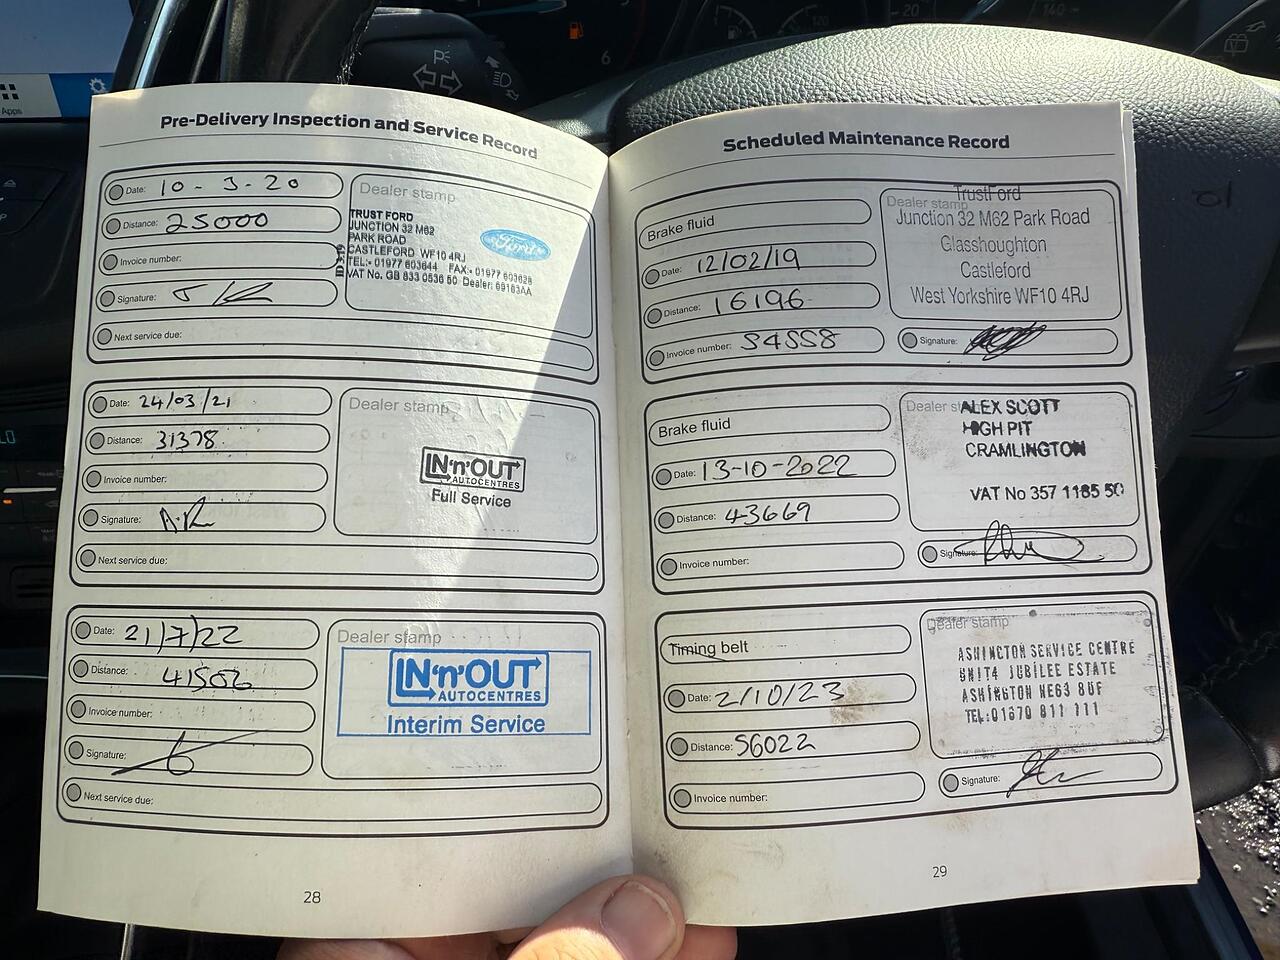 Apps
6
20
120
140
Pre-Delivery Inspection and Service Record
Date: 10-3-20
Distance: 25000
Invoice number:
Signature:
Next service due:
Dealer stamp
TRUST FORD
JUNCTION 32 M62
PARK ROAD
CASTLEFORD WF10 4RJ
TEL:- 01977 603644 FAX:- 01977 603628
VAT No. GB 633 0536 50 Dealer: 69163AA
Ford
Date: 24/03/21
Distance: 31378
Invoice number:
Signature:
Next service due:
Dealer stamp
IN'n'OUT
AUTOCENTRES
Full Service
Date: 21/7/22
Distance:
Invoice number:
Signature:
Next service due:
Dealer stamp
IN'n'OUT
AUTOCENTRES
Interim Service
28
Scheduled Maintenance Record
Brake fluid
Date: 12/02/19
Distance: 16196
Invoice number: 34558
Dealer stamp
TrustFord
Junction 32 M62 Park Road
Glasshoughton
Castleford
West Yorkshire WF10 4RJ
Signature:
Brake fluid
Date: 13-10-2022
Distance: 43669
Invoice number:
Dealer
ALEX SCOTT
HIGH PIT
CRAMLINGTON
VAT No 357 1185 50
Signature:
Timing belt
Date: 2/10/23
Distance: 56022
Invoice number:
Dealer stamp
ASHINGTON SERVICE CENTRE
UNIT4 JUBILEE ESTATE
ASHINGTON NE63 8UF
TEL:01670 811 111
Signature:
29